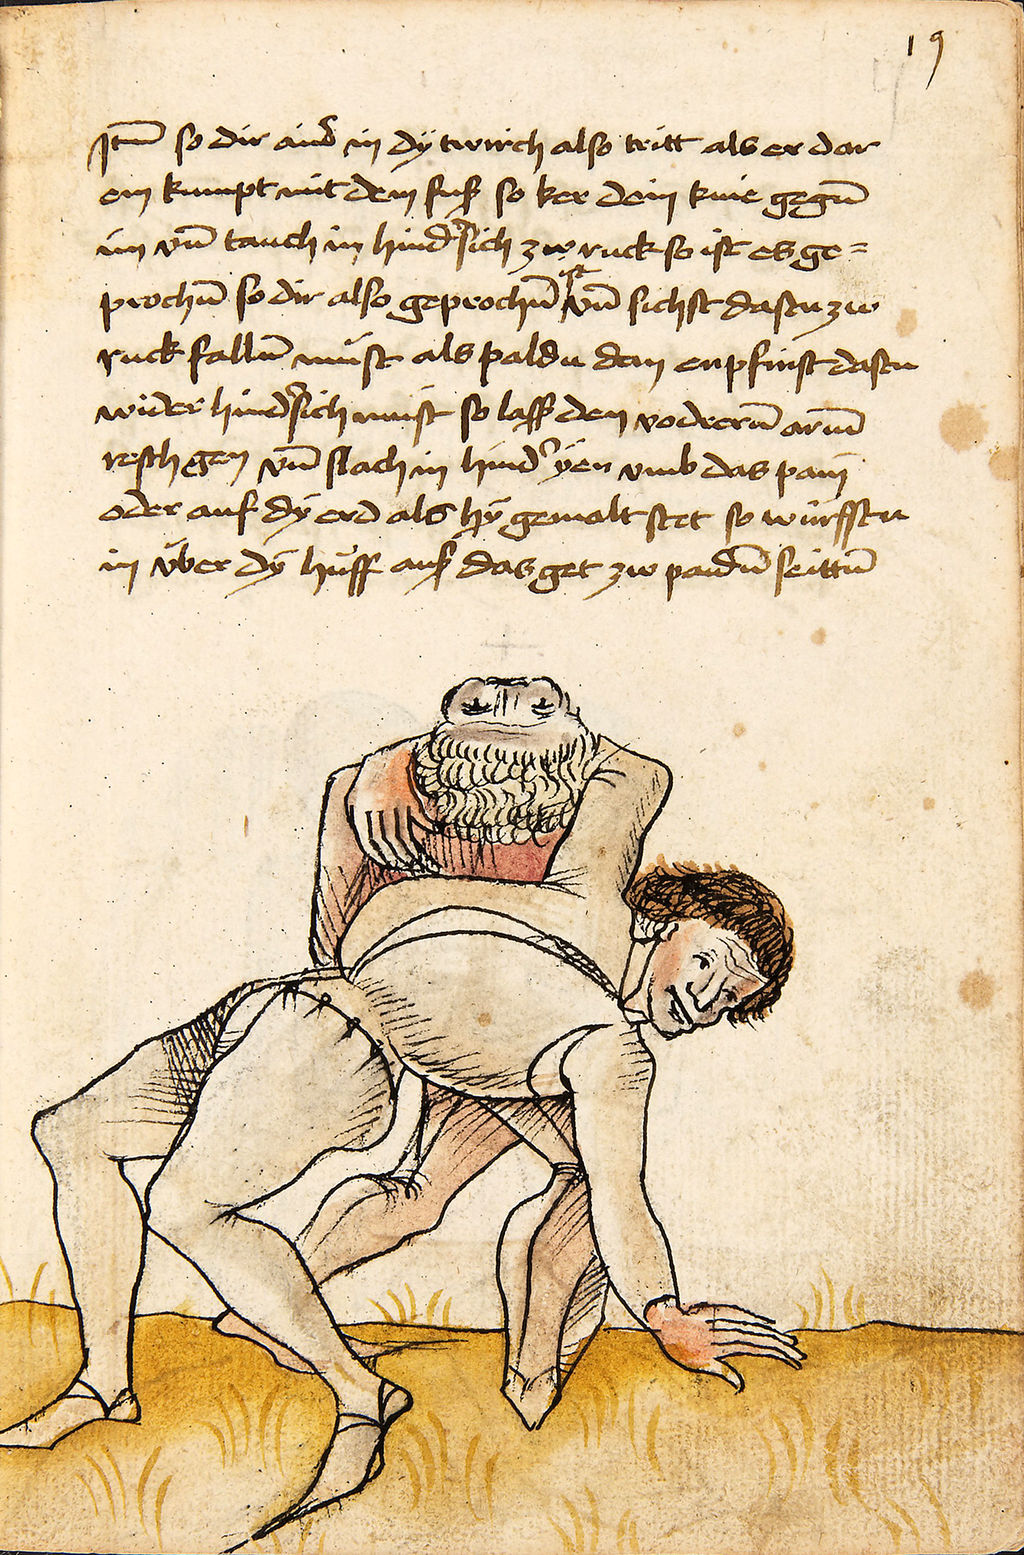 19
Itm̄ so dir ainð in dÿ twirch also tritt als er dar
ein kumpt mit dem fuß so ker dein knie gegn̄
im vn̄ tauch in hindsich zw ruck so ist es ge=
prochn̄ so dir also geprochn̄ ist vn̄ sichst dastu zw
ruck falln̄ must als pald du dan enpfinst dastu
wider hindsich must so lass den vodrern̄ arm̄
resch gen vn̄ slach in hind yen vmb das pain
oder auf dÿ erd als hÿ gemalt stet so würfstu
in über dÿ huff auß das get zw paidn̄ seittn̄